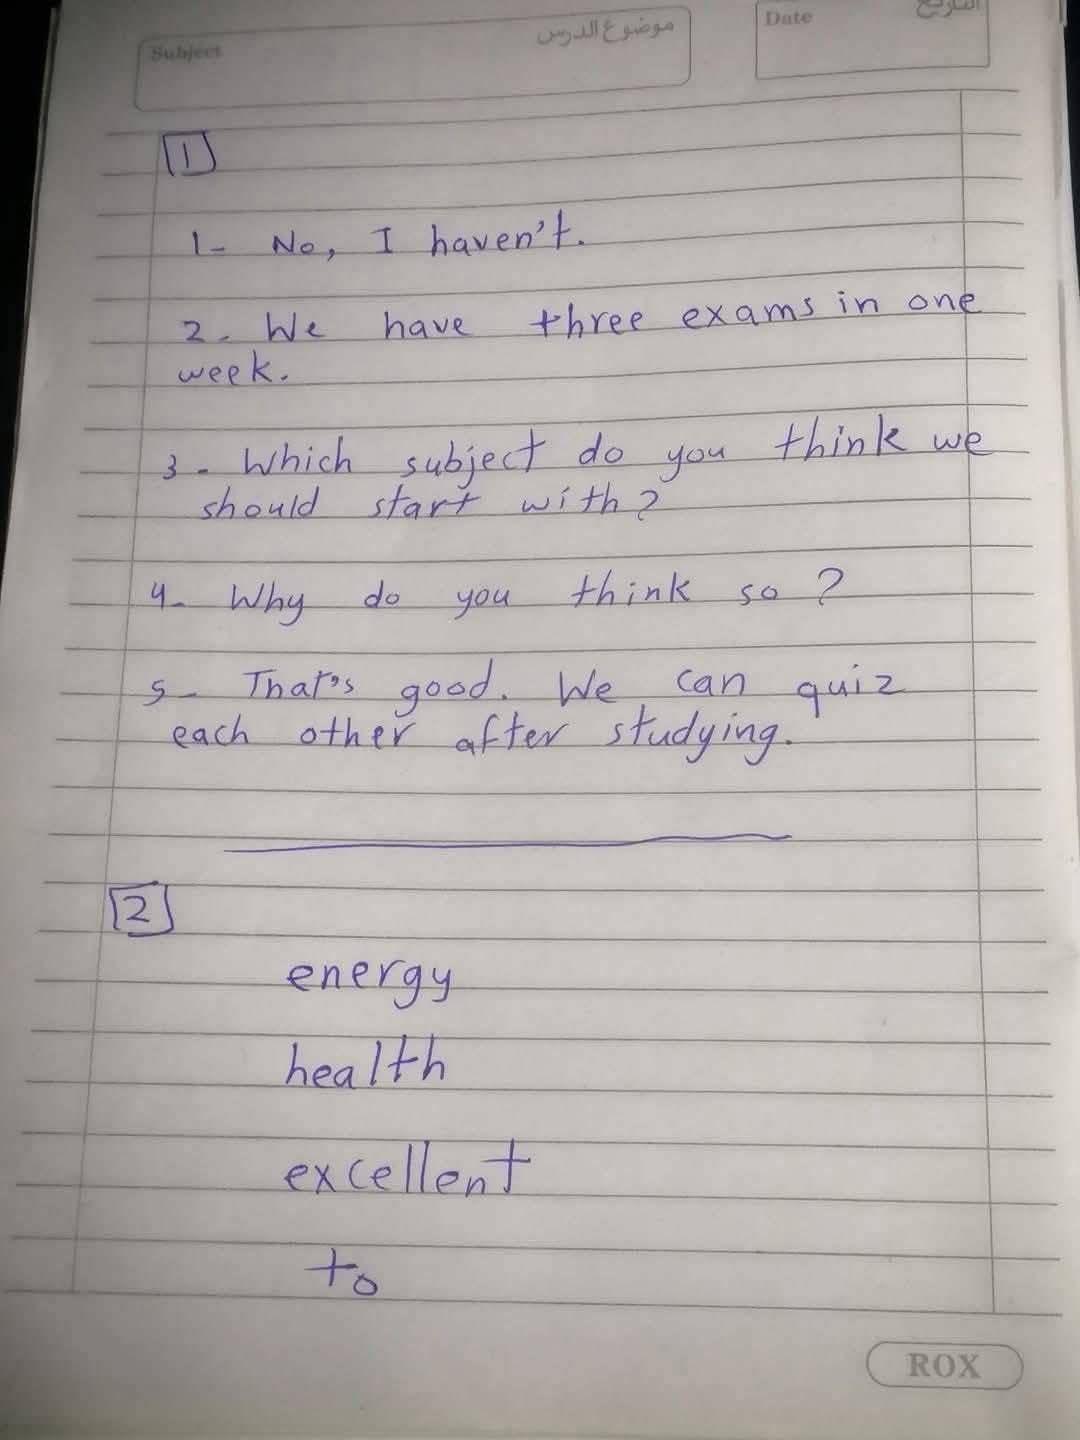 Subject موضوع الدرس Date التاريخ
1
1- No, I haven't.
2- We have three exams in one
week.
3- Which subject do you think we
should start with?
4- Why do you think so?
5- That's good. We can quiz
each other after studying.
2
energy
health
excellent
to
ROX